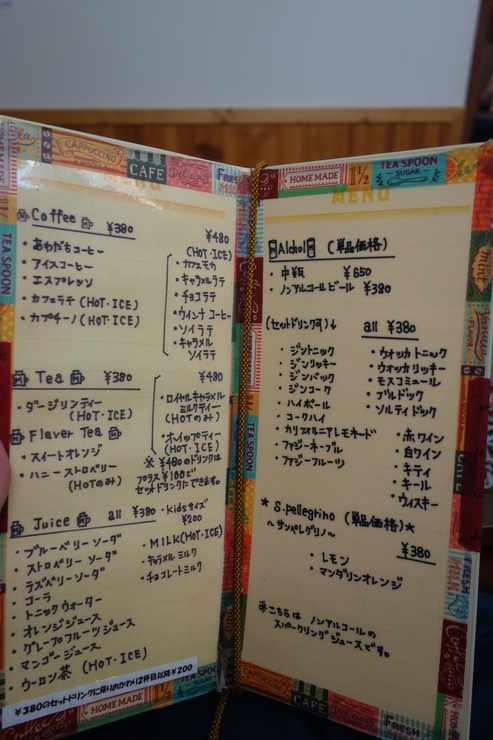 CAPPUCCINO
CAFE
Delicious
FRESH
MENU
TEA SPOON
Coffee ¥380
・あわだちコーヒー
・アイスコーヒー
・エスプレッソ
・カフェラテ (HOT・ICE)
・カプチーノ (HOT・ICE)
¥480
(HOT・ICE)
・カフェモカ
・キャラメルラテ
・チョコラテ
・ウィンナコーヒー
・ソイラテ
・キャラメル
ソイラテ
Tea ¥380
・ダージリンティー
(HOT・ICE)
Flaver Tea
・スイートオレンジ
・ハニーストロベリー
(HOTのみ)
¥480
・ロイヤルキャラメル
ミルクティー
(HOTのみ)
・ホイップティー
(HOT・ICE)
※¥480のドリンクは
プラス¥100で
セットドリンクにできます。
Juice all ¥380
・ブルーベリーソーダ
・ストロベリーソーダ
・ラズベリーソーダ
・コーラ
・トニックウォーター
・オレンジジュース
・グレープフルーツジュース
・マンゴージュース
・ウーロン茶 (HOT・ICE)
・kidsサイズ
¥200
・MILK(HOT・ICE)
・キャラメルミルク
・チョコレートミルク
¥380のセットドリンクに限りおかわり2杯目以降¥200
HOME MADE
HOME MADE
1½
TEA SPOON
SUGAR
MENU
mint
TEA SPOON
Alchol (単品価格)
・中瓶 ¥650
・ノンアルコールビール ¥380
(セットドリンク可)↓ all ¥380
・ジントニック
・ジンリッキー
・ジンバック
・ジンコーク
・ハイボール
・コークハイ
・カリフォルニアレモネード
・ファジーネーブル
・ファジーフルーツ
・ウォッカトニック
・ウォッカリッキー
・モスコミュール
・ブルドック
・ソルティドック
・赤ワイン
・白ワイン
・キティ
・キール
・ウィスキー
★S.pellegrino (単品価格)★
～サンペレグリノ～
¥380
・レモン
・マンダリンオレンジ
※こちらは ノンアルコールの
スパークリングジュースです。
CAPPUCCINO
CAFE
Delicious
FRESH
HOME MADE
1½